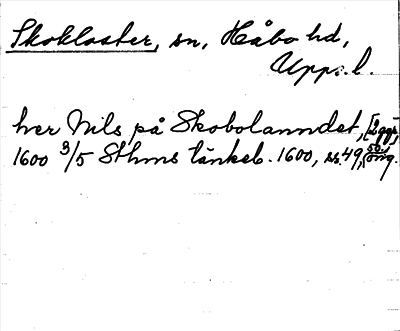 Skokloster, sn, Håbo hd,
Upps. l.
her Nils på Skobolanndet, [2 ggr,
1600 3/5 Sthms tänkeb. 1600, ss. 49, 50, orig.